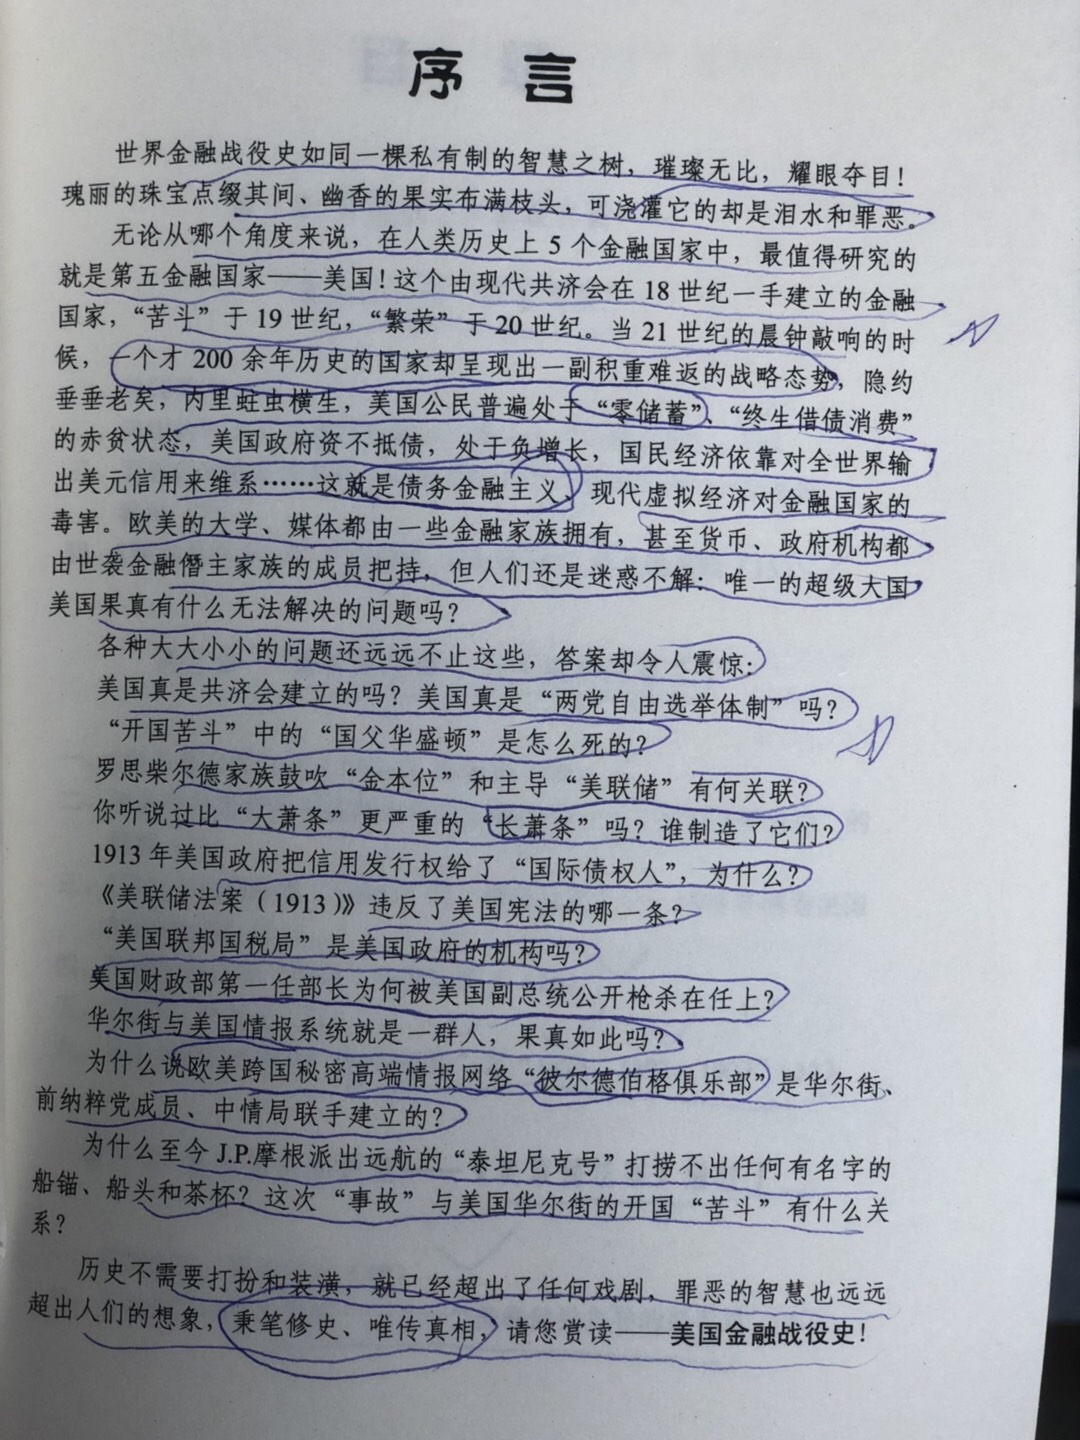 序言
世界金融战役史如同一棵私有制的智慧之树，璀璨无比，耀眼夺目！
瑰丽的珠宝点缀其间、幽香的果实布满枝头，可浇灌它的却是泪水和罪恶。
无论从哪个角度来说，在人类历史上 5 个金融国家中，最值得研究的
就是第五金融国家——美国！这个由现代共济会在 18 世纪一手建立的金融
国家，“苦斗”于 19 世纪，“繁荣”于 20 世纪。当 21 世纪的晨钟敲响的时
候，一个才 200 余年历史的国家却呈现出一副积重难返的战略态势，隐约
垂垂老矣，内里蛀虫横生，美国公民普遍处于“零储蓄”、“终生借债消费”
的赤贫状态，美国政府资不抵债，处于负增长，国民经济依靠对全世界输
出美元信用来维系……这就是债务金融主义、现代虚拟经济对金融国家的
毒害。欧美的大学、媒体都由一些金融家族拥有，甚至货币、政府机构都
由世袭金融僭主家族的成员把持，但人们还是迷惑不解：唯一的超级大国
美国果真有什么无法解决的问题吗？
各种大大小小的问题还远远不止这些，答案却令人震惊：
美国真是共济会建立的吗？美国真是“两党自由选举体制”吗？
“开国苦斗”中的“国父华盛顿”是怎么死的？
罗思柴尔德家族鼓吹“金本位”和主导“美联储”有何关联？
你听说过比“大萧条”更严重的“长萧条”吗？谁制造了它们？
1913 年美国政府把信用发行权给了“国际债权人”，为什么？
《美联储法案（1913）》违反了美国宪法的哪一条？
“美国联邦国税局”是美国政府的机构吗？
美国财政部第一任部长为何被美国副总统公开枪杀在任上？
华尔街与美国情报系统就是一群人，果真如此吗？
为什么说欧美跨国秘密高端情报网络“彼尔德伯格俱乐部”是华尔街、
前纳粹党成员、中情局联手建立的？
为什么至今 J.P.摩根派出远航的“泰坦尼克号”打捞不出任何有名字的
船锚、船头和茶杯？这次“事故”与美国华尔街的开国“苦斗”有什么关
系？
历史不需要打扮和装潢，就已经超出了任何戏剧，罪恶的智慧也远远
超出人们的想象，秉笔修史、唯传真相，请您赏读——美国金融战役史！